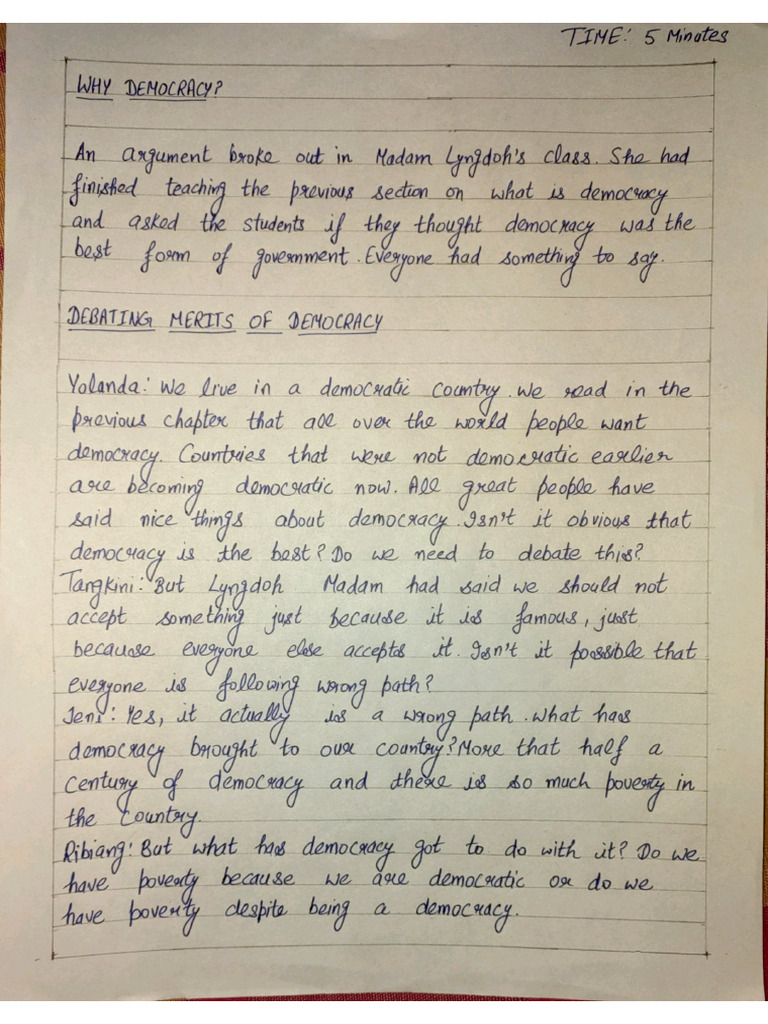 TIME: 5 Minutes
WHY DEMOCRACY?
An argument broke out in Madam Lyngdoh's class. She had
finished teaching the previous section on what is democracy
and asked the students if they thought democracy was the
best form of government. Everyone had something to say.
DEBATING MERITS OF DEMOCRACY
Yolanda: We live in a democratic country. We read in the
previous chapter that all over the world people want
democracy. Countries that were not democratic earlier
are becoming democratic now. All great people have
said nice things about democracy. Isn't it obvious that
democracy is the best? Do we need to debate this?
Tangkini: But Lyngdoh Madam had said we should not
accept something just because it is famous, just
because everyone else accepts it. Isn't it possible that
everyone is following wrong path?
Jeni: Yes, it actually is a wrong path. What has
democracy brought to our country? More that half a
century of democracy and there is so much poverty in
the country.
Ribiang: But what has democracy got to do with it? Do we
have poverty because we are democratic or do we
have poverty despite being a democracy.